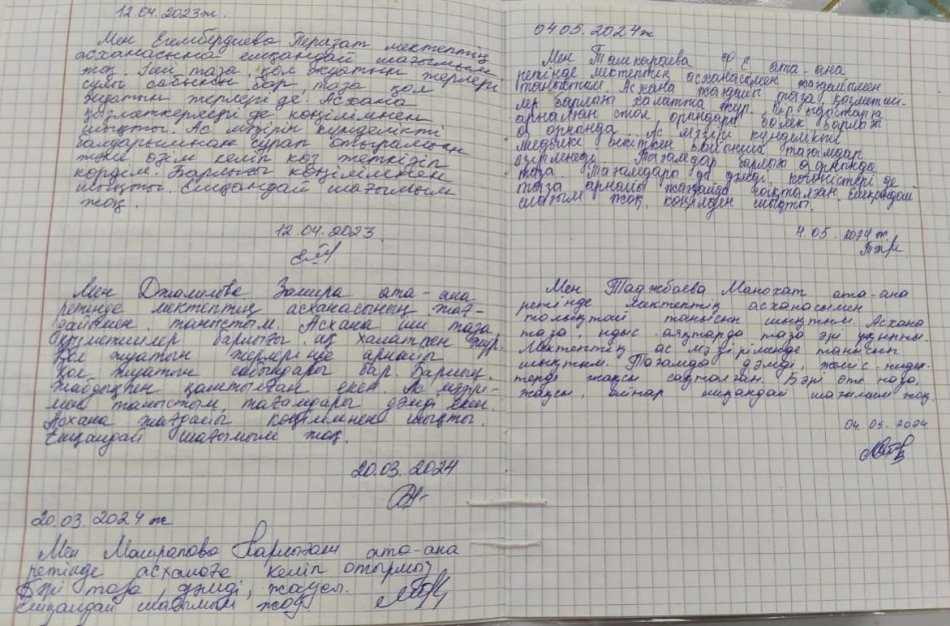 12.04.2023ж.
Мен Егембердиева Перазат мектептің
асханасына ешқандай шағымым
жоқ. Іші таза, қол жуатын жерлері
сулы сабынсы бар, таза қол
жуатын жерлері де. Асхана
қызметкерлері де көңілімнен
шықты. Ас мәзірін күнделікті
балдарымнан сұрап отырамын
және өзім келіп көз жеткізіп
көрдім. Барлығы көңілімнен
шықты. Ешқандай шағымым
жоқ.
12.04.2023
Мен Джамилова Замира ата-ана
ретінде мектептің асханасының жағ-
дайымен таныстым. Асхана іші таза,
қызметшілер барлығы ақ халатпен жүр.
Қол жуатын жерлерінде арнайы
қол жуатын сабындары бар. Барлық
жағдаймен қамтылған екен. Ас мәзірі-
мен таныстым, тағамдары дәмді екен
Асхана жағдайы көңілімнен шықты.
Ешқандай шағымым жоқ.
20.03.2024
20.03.2024ж
Мен Машрапова Карлығаш ата-ана
ретінде асханаға келіп отырмыз
Бәрі таза, дәмді, жақсы.
Ешқандай шағымым жоқ
04.05.2024ж
Мен Ташкараева ата-ана
ретінде мектептің асханасымен жағдайымен
таныстым. Асхана жағдайы таза, қызметші-
лер барлығы халатта жүр. Кір ыдыстарға
арналған стол орындары бөлек барлығы
өз орнында. Ас мәзірі күнделікті
медбике бекіткен бойынша тағамдар
өзгермейді. Тағамдар барлығы өз орнында
таза. Тағамдары да дәмді, көкөністері де
таза арнайы жағдайда сақталған. Ешқандай
шағым жоқ, көңілден шықты.
4.05.2024ж
Мен Таджбаева Манохат ата-ана
ретінде мектептің асханасымен
толықтай танысып шықтым. Асхана
таза, ыдыс аяқтарда таза әрі ұқыпты.
Мектептің ас мәзірімен де танысып
шықтым. Тағамда дәмді, жеміс-жидек-
терді жақсы сақталған. Бәрі өте таза,
жақсы, ешқандай шағымым жоқ.
04.05.2024